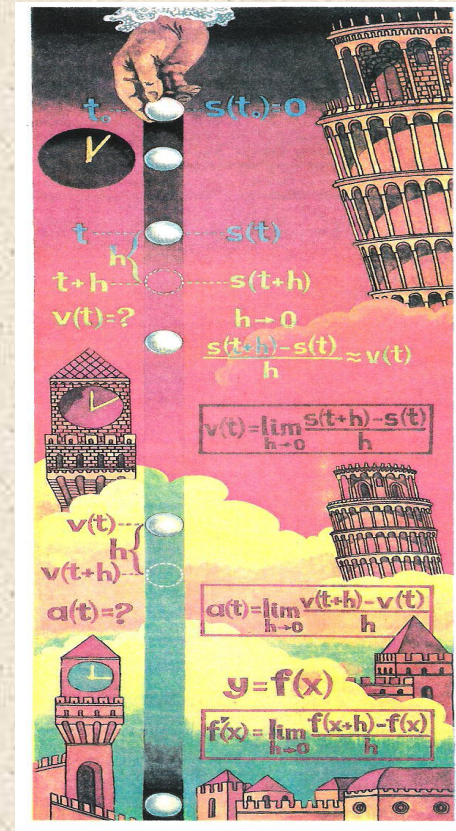 t₀ s(t₀)=0
t s(t)
h
t+h s(t+h)
v(t)=? h→0
s(t+h)-s(t)
h
≈v(t)
v(t)=lim s(t+h)-s(t)
h→0 h
v(t)
h
v(t+h)
a(t)=? a(t)=lim v(t+h)-v(t)
h→0 h
y=f(x)
f'(x)=lim f(x+h)-f(x)
h→0 h